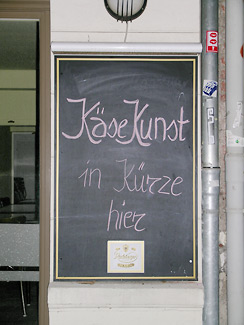 KäseKunst
in Kürze
hier